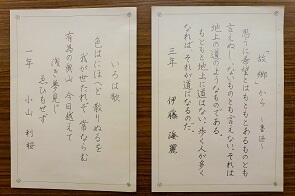 「故郷」から ～魯迅～
思うに希望とはもともとあるものとも
言えぬし、ないものとも言えない。それは
地上の道のようなものである。
もともと地上に道はない。歩く人が多く
なれば、それが道になるのだ。
三年 伊藤 海麗
いろは歌
色はにほへど 散りぬるを
我が世たれぞ 常ならむ
有為の奥山 今日越えて
浅き夢見じ
ゑひもせず
一年 小山 利桜